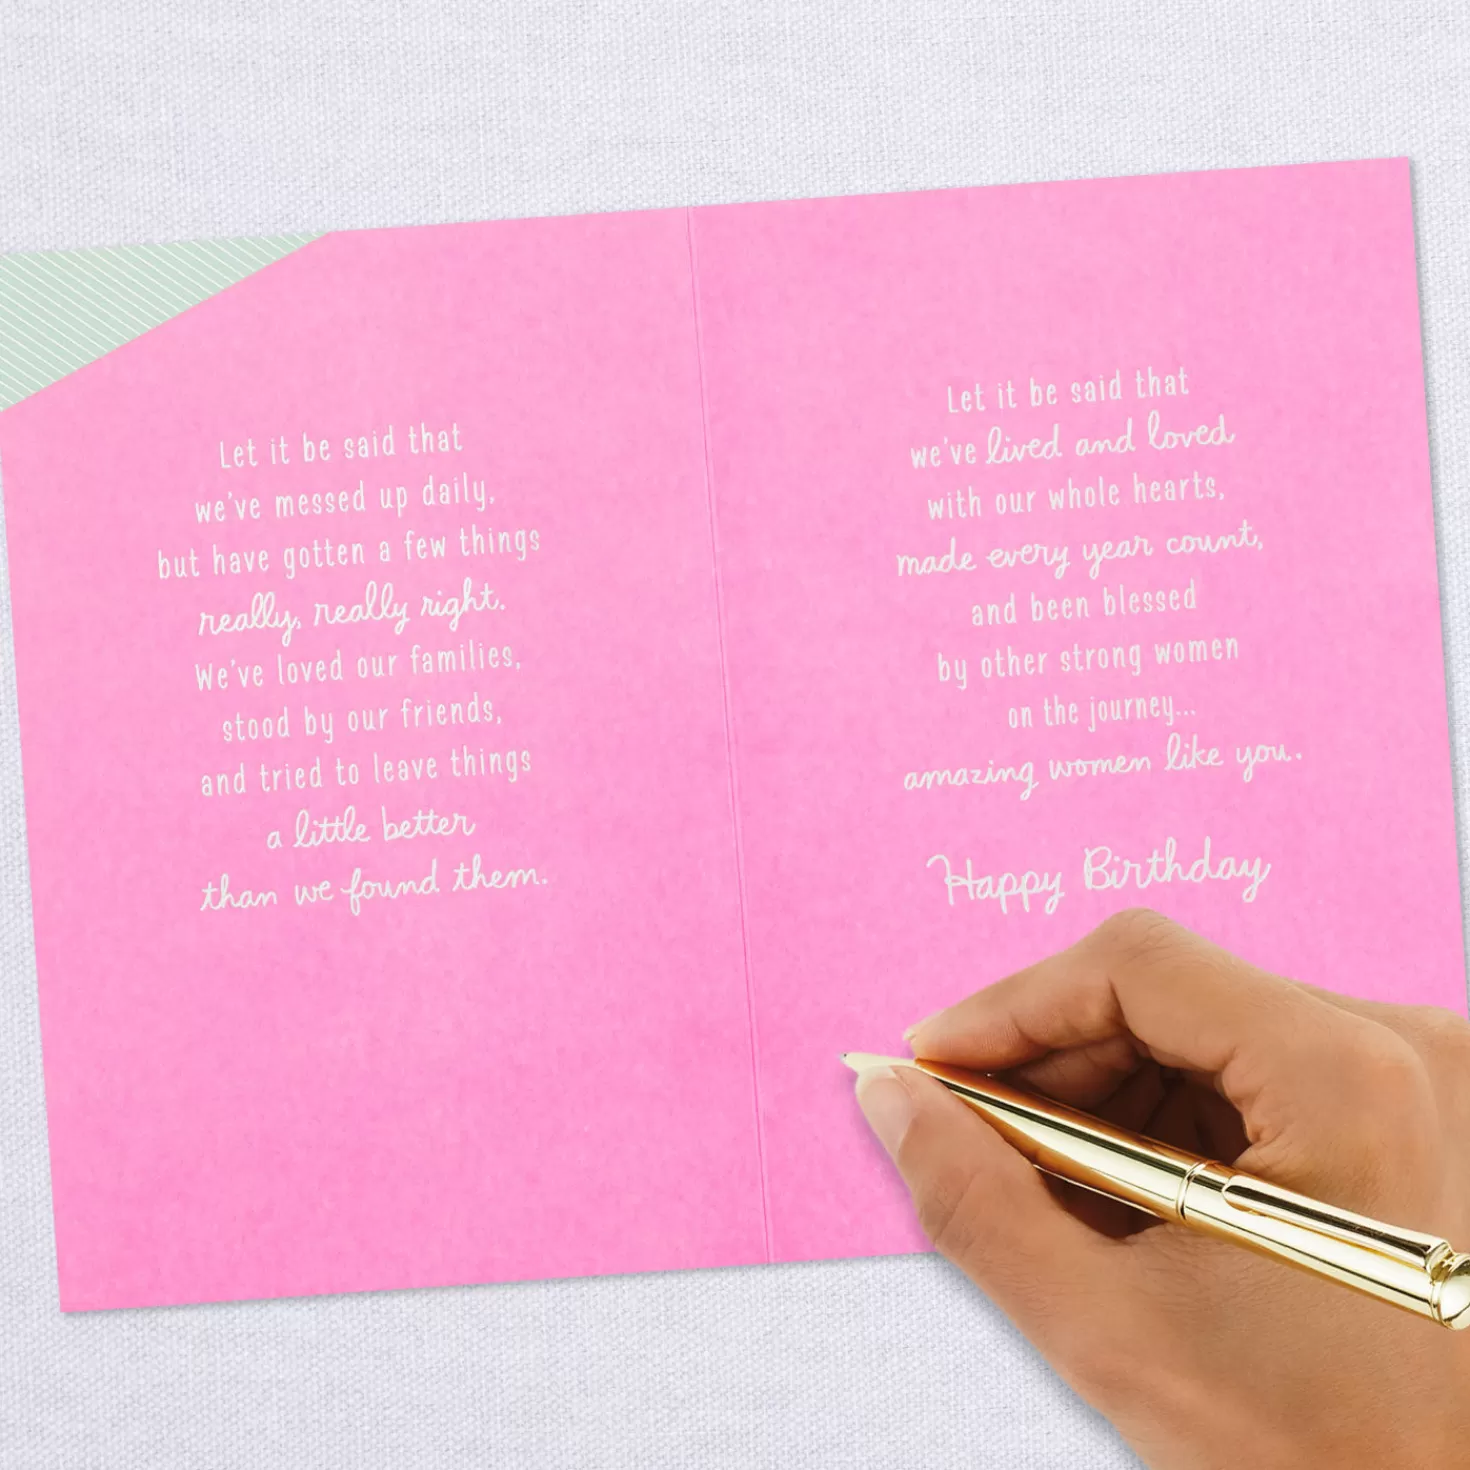 Let it be said that
we've messed up daily,
but have gotten a few things
really, really right.
We've loved our families,
stood by our friends,
and tried to leave things
a little better
than we found them.
Let it be said that
we've lived and loved
with our whole hearts,
made every year count,
and been blessed
by other strong women
on the journey...
amazing women like you.
Happy Birthday